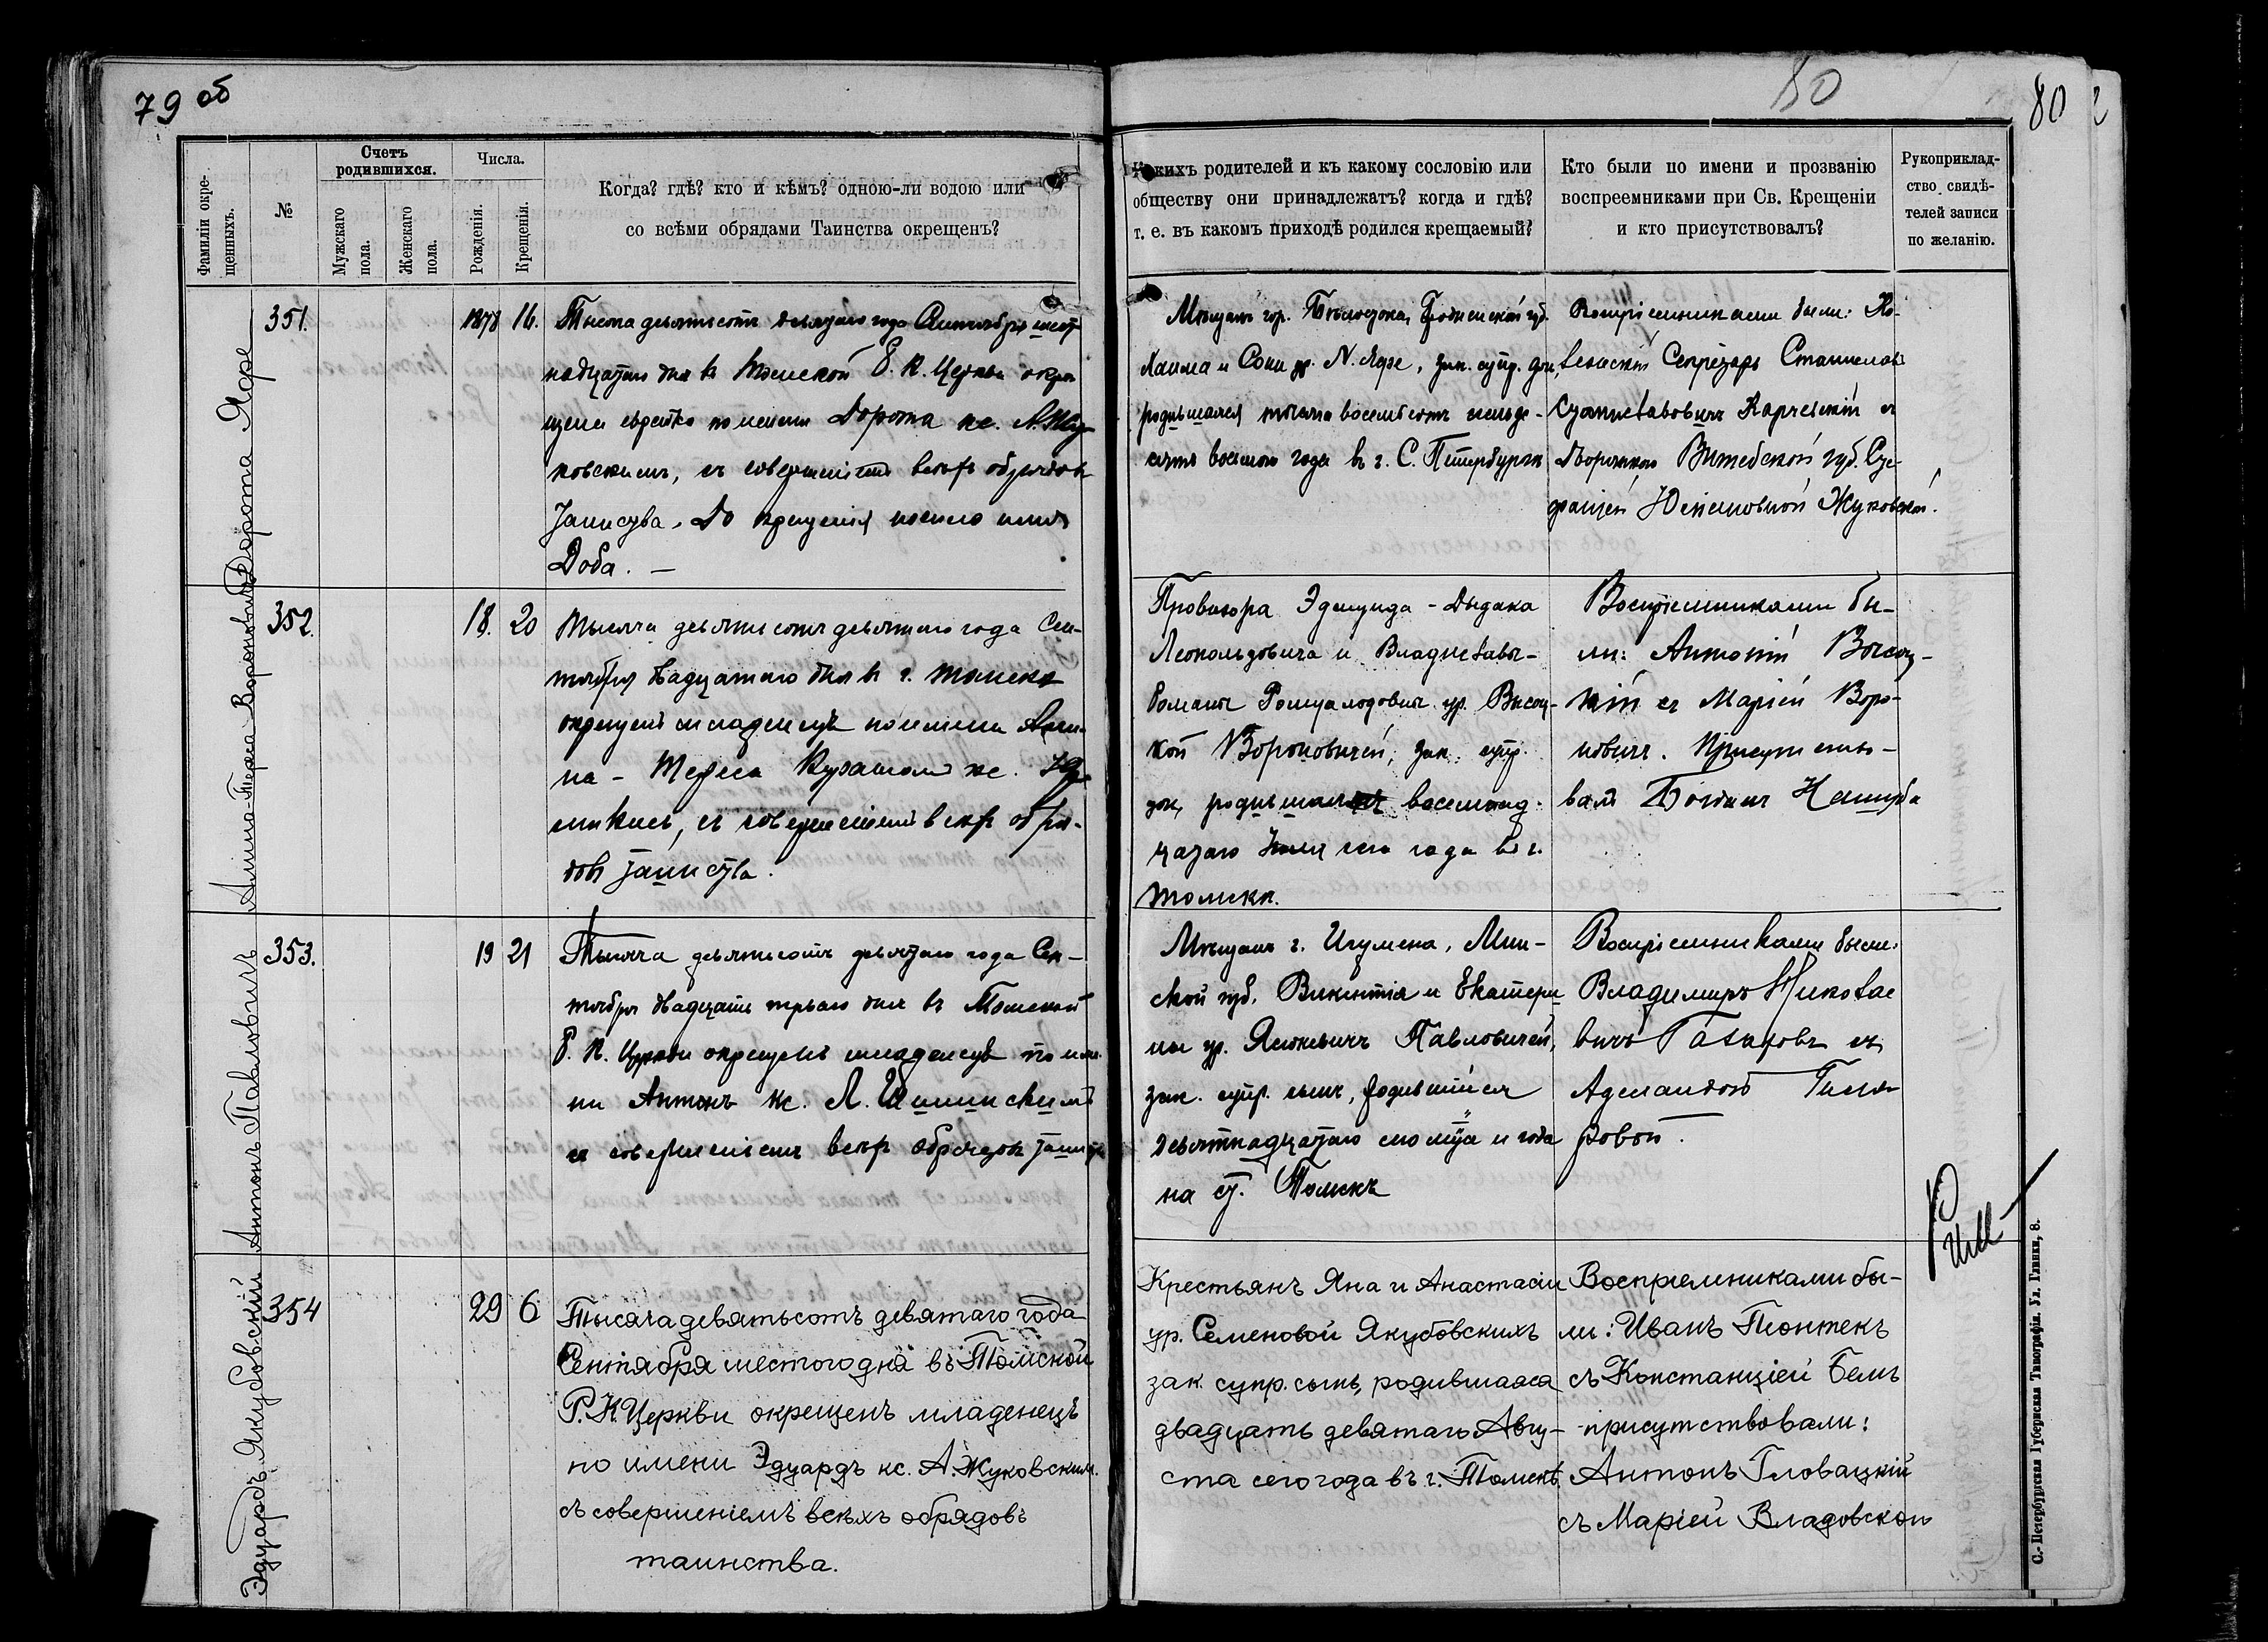 79 об
80
80
Фамиліи окре-
щенныхъ.
№
Счетъ
родившихся.
Мужскаго
пола.
Женскаго
пола.
Числа.
Рожденія.
Крещенія.
Когда? гдѣ? кто и кѣмъ? одною-ли водою или
со всѣми обрядами Таинства окрещенъ?
Какихъ родителей и къ какому сословію или
обществу они принадлежатъ? когда и гдѣ?
т. е. въ какомъ приходѣ родился крещаемый?
Кто были по имени и прозванію
воспреемниками при Св. Крещеніи
и кто присутствовалъ?
Рукоприклад-
ство свидѣ-
телей записи
по желанію.
Дорота Яфе
351.
1878 16.
Тысяча девятьсотъ девятаго года Сентября шест-
надцатаго дня въ Томской Р. К. Церкви окре-
щена еврейка по имени Дорота кс. А. Жу-
ковскимъ, съ совершеніемъ всѣхъ обрядовъ
таинства. До крещенія носила имя
Доба. —
Мѣщанъ гор. Бѣлостока, Гродненской губ.
Хаима и Сони ур. N. Яфе, зак. супр. дочь,
родившаяся тысяча восемьсотъ семьде-
сятъ восьмого года въ г. С. Петербургѣ
Воспріемниками были: Ко-
Секретарь Станиславъ
съ
дворянкою Витебской губ. Сте-
фаніей Жуковской.
Анна-Тереса Вороновичъ
352.
18. 20
Тысяча девятьсотъ девятаго года Сен-
тября двадцатаго дня въ г. Томскѣ
окрещенъ младенецъ по имени Анна-
на - Тереса Куратомъ кс.
съ совершеніемъ всѣхъ обря-
довъ таинства.
Провизора Эдмунда - Дыдака
Леопольдовича и Владиславы-
Романы Ромуальдовны ур. Высоц-
кой Вороновичей, зак. супр.
дочь, родившаяся восемнад-
цатаго сего года въ г.
Томскѣ.
Воспріемниками бы-
ли: Антоній Высоц-
кій съ Маріей Воро-
новичъ. Присутство-
валъ Богданъ
Антонъ Павловичъ
353.
19 21
Тысяча девятьсотъ девятаго года Сен-
тября двадцать перваго дня въ Томской
Р. К. Церкви окрещенъ младенецъ по име-
ни Антонъ кс. Л.
съ совершеніемъ всѣхъ обрядовъ таинства
Мѣщанъ г. Игумена, Мин-
ской губ. Викентія и Екатери-
ны ур. Яцкевичъ Павловичей,
зак. супр. сынъ, родившійся
девятнадцатаго сего м-ца и года
на ст. Томскъ
Воспріемниками были:
Владимиръ Николае
вичъ съ
354
29 6
Эдуардъ Якубовскій
Тысяча девятьсотъ девятаго года
Сентября шестого дня въ Томской
Р. К. Церкви окрещенъ младенецъ
по имени Эдуардъ кс. А. Жуковскимъ
съ совершеніемъ всѣхъ обрядовъ
таинства.
Крестьянъ Яна и Анастасіи
ур. Семеновой Якубовскихъ
зак. супр. сынъ, родившаяся
двадцать девятаго Авгу-
ста сего года въ г. Томскѣ.
Воспріемниками бы-
ли: Иванъ Піонтекъ
съ Констанціей Бемъ
присутствовали:
Антонъ Гловацкій
съ Маріей Владовской
С.-Петербургская Губернская Типографія. Ул. Глинки, 8.